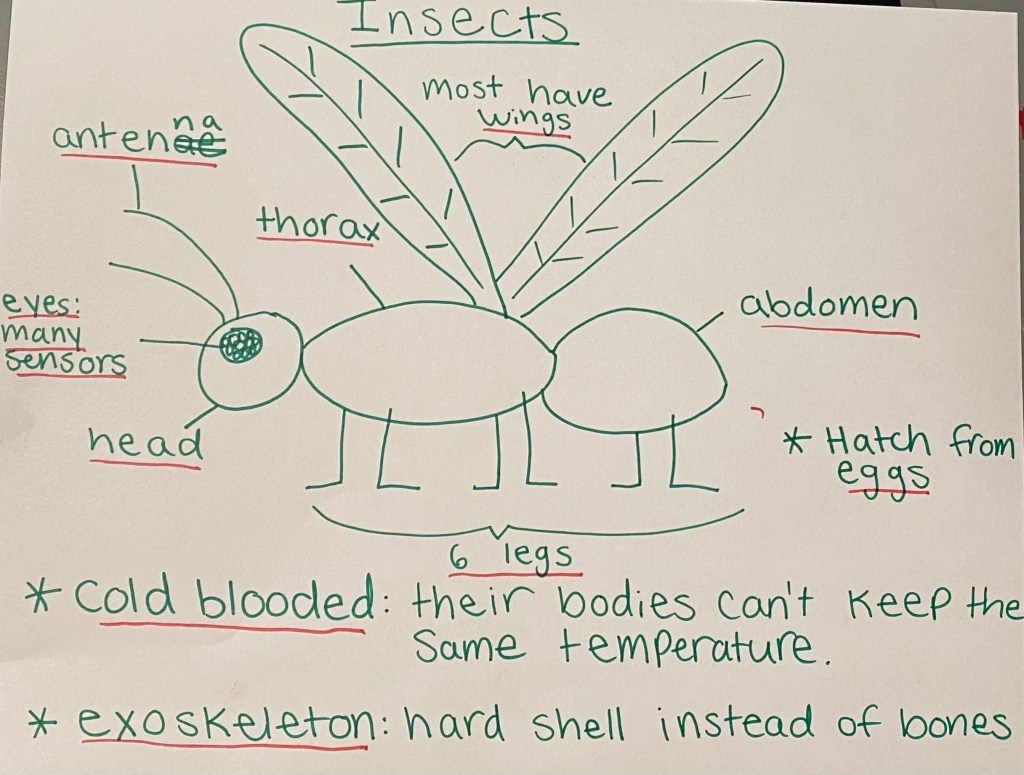 Insects
most have
wings
antenna
thorax
eyes:
many
sensors
abdomen
head
* Hatch from
eggs
6 legs
* Cold blooded: their bodies can't keep the
same temperature.
* exoskeleton: hard shell instead of bones